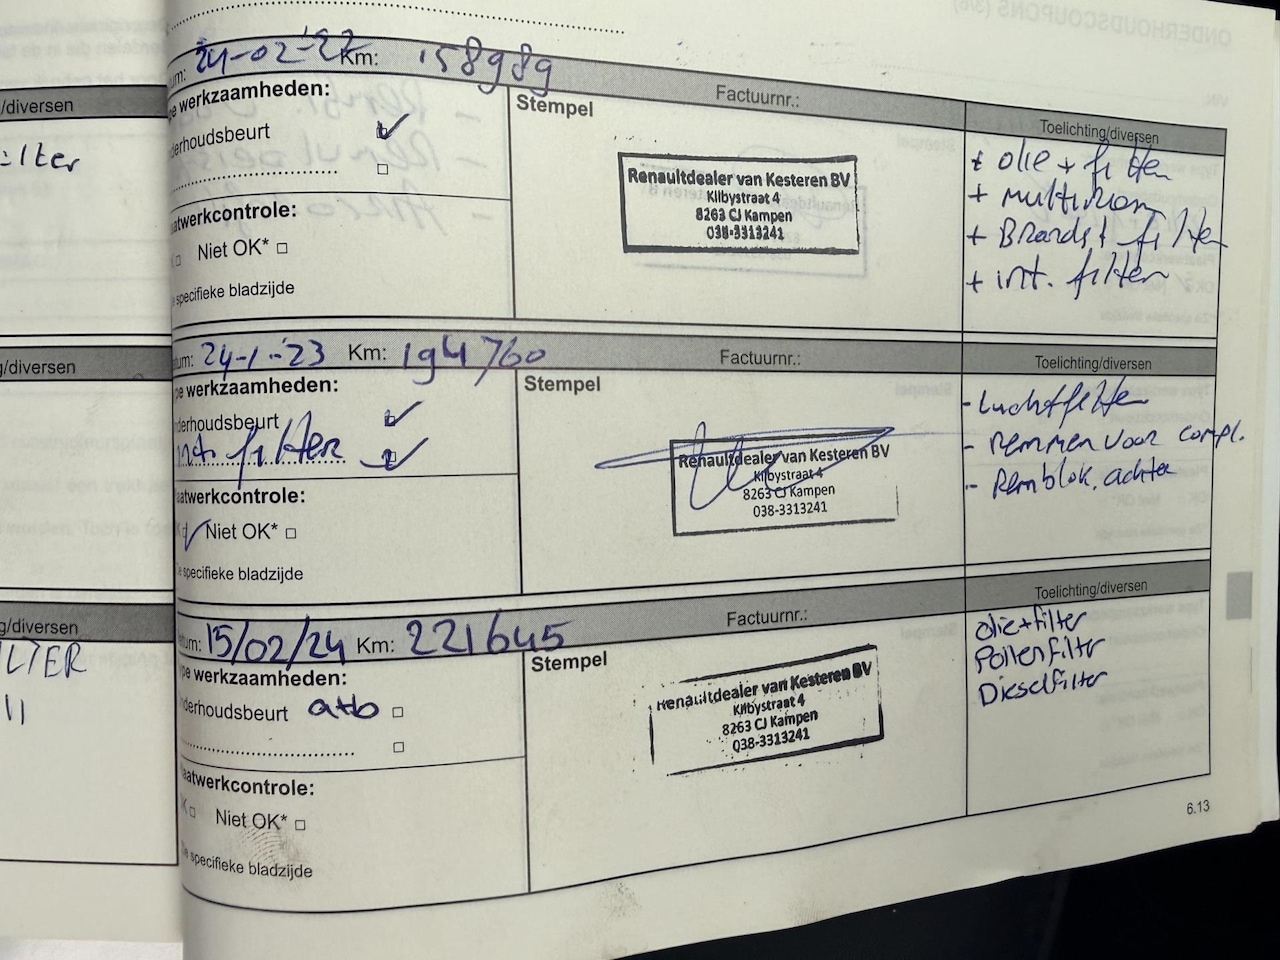 /diversen
ilter
g/diversen
g/diversen
ILTER
ONDERHOUDSCOUPONS (3/6)
um: 24-02-'22 Km: 158989
Factuurnr.:
pe werkzaamheden:
derhoudsbeurt
aatwerkcontrole:
Niet OK*
e specifieke bladzijde
Stempel
Renaultdealer van Kesteren BV
Kilbystraat 4
8263 CJ Kampen
038-3313241
Toelichting/diversen
+ olie + filter
+ multiriem
+ Brandst filter
+ int. filter
tum: 24-1-'23 Km: 194760
Factuurnr.:
pe werkzaamheden:
derhoudsbeurt
int. filter
aatwerkcontrole:
K Niet OK*
e specifieke bladzijde
Stempel
Renaultdealer van Kesteren BV
Kilbystraat 4
8263 CJ Kampen
038-3313241
Toelichting/diversen
- Luchtfilter
- remmen voor compl.
- Remblok. achter
atum: 15/02/24 Km: 221645
Factuurnr.:
pe werkzaamheden:
derhoudsbeurt
aatwerkcontrole:
K Niet OK*
e specifieke bladzijde
Stempel
Renaultdealer van Kesteren BV
Kilbystraat 4
8263 CJ Kampen
038-3313241
Toelichting/diversen
olie+filter
Pollenfilter
Dieselfilter
6.13